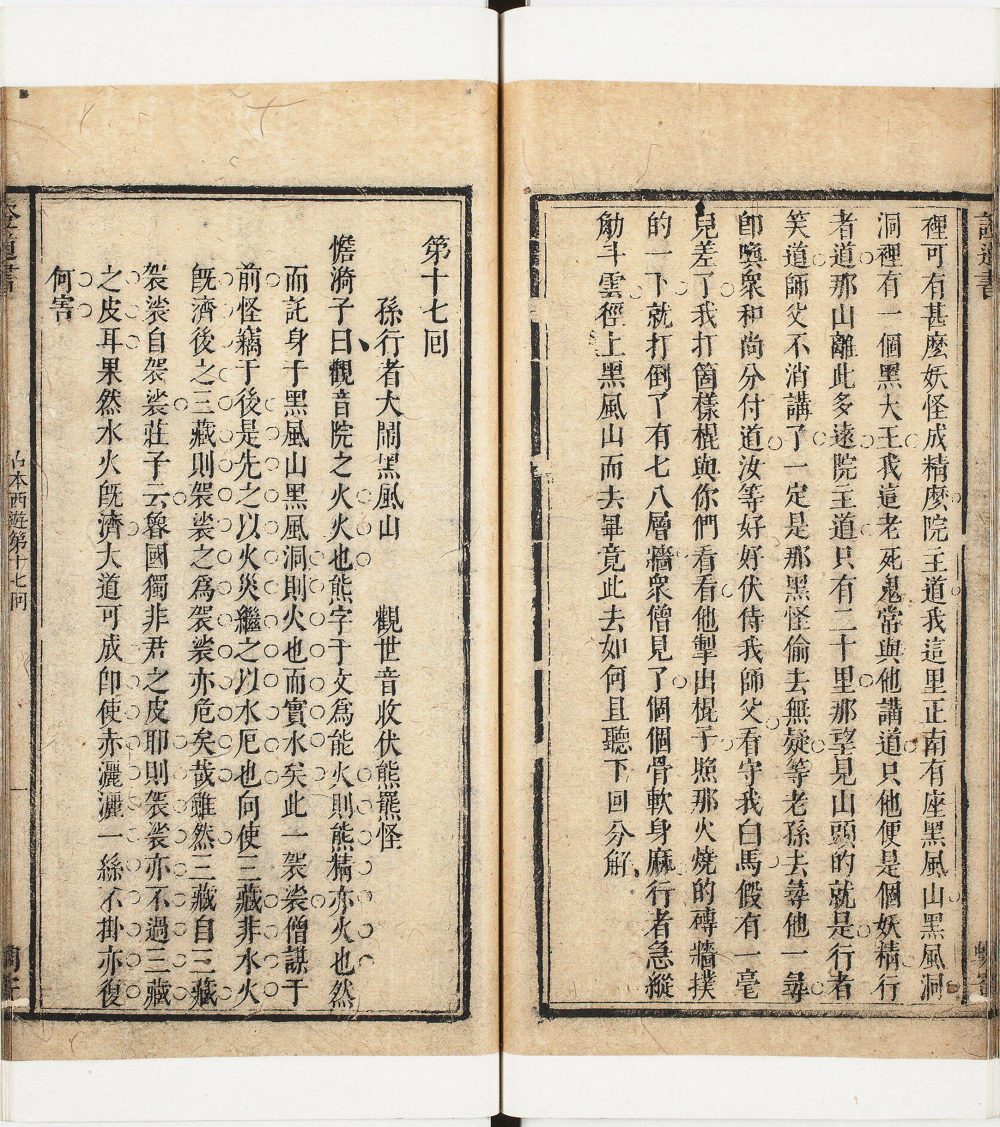 裡可有甚麼妖怪成精麼院主道我這里正南有座黑風山黑風洞
洞裡有一個黑大王我這老死鬼常與他講道只他便是個妖精行
者道那山離此多遠院主道只有二十里那望見山頭的就是行者
笑道師父不消講了一定是那黑怪偷去無疑等老孫去尋他一尋
卽喚衆和尚分付道汝等好好伏侍我師父看守我白馬假有一毫
兒差了我打箇樣棍與你們看看他掣出棍子照那火燒的磚牆撲
的一下就打倒了有七八層牆衆僧見了個個骨軟身麻行者急縱
觔斗雲徑上黑風山而去畢竟此去如何且聽下回分解
第十七回
孫行者大鬧黑風山 觀世音收伏熊羆怪
憺漪子曰觀音院之火火也熊字于文爲能火則熊精亦火也然
而託身于黑風山黑風洞則火也而實水矣此一袈裟僧謀于
前怪竊于後是先之以火災繼之以水厄也向使三藏非水火
旣濟後之三藏則袈裟之爲袈裟亦危矣哉雖然三藏自三藏
袈裟自袈裟莊子云魯國獨非君之皮耶則袈裟亦不過三藏
之皮耳果然水火旣濟大道可成卽使赤灑灑一絲不掛亦復
何害
古本西遊第十七回
一